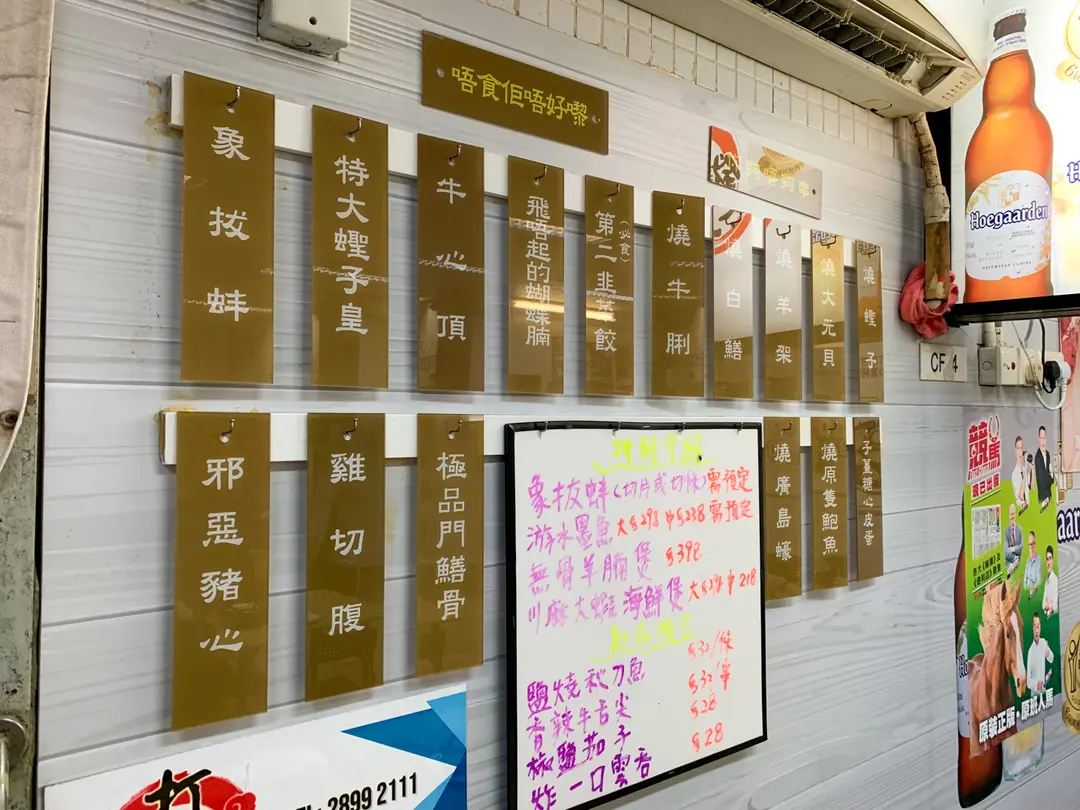 唔食佢唔好嚟
象拔蚌
特大蟶子皇
牛心頂
飛唔起的蝴蝶腩
第二韭菜餃
(必食)
燒牛脷
燒白鱔
燒羊架
燒大元貝
燒蟶子
邪惡豬心
雞切腹
極品門鱔骨
燒廣島蠔
燒原隻鮑魚
子薑糖心皮蛋
象拔蚌(切片或切條)需預定
游水墨魚 大$298 中$238 需預定
無骨羊腩煲 $398
川麻大蝦海鮮煲 大$398 中218
鹽燒秋刀魚 $32/條
香辣牛舌尖 $32/串
椒鹽茄子 $28
炸一口雲吞 $28
打
2899 2111
Hoegaarden
CF 4
現已出版
原裝正版·原班人馬